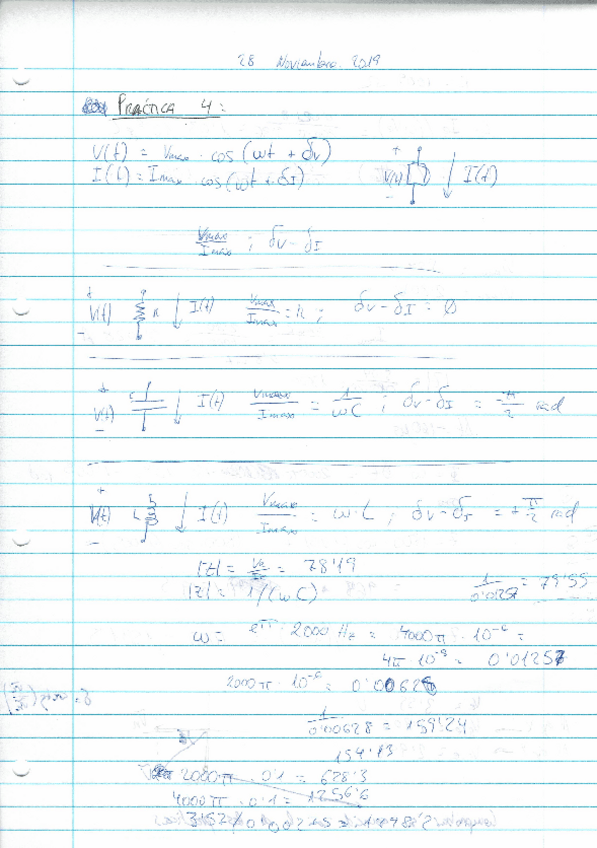 28 Noviembre 2019
PRÁCTICA 4:
V(t) = Vmax · cos (ωt + δv)
I(t) = Imax · cos (ωt + δI)
+ V(t) - I(t)
Vmax / Imax ; δv - δI
+ V(t) - R I(t) Vmax / Imax = R ; δv - δI = Ø
+ V(t) - C I(t) Vmax / Imax = 1 / ωC ; δv - δI = -π/2 rad
+ V(t) - L I(t) Vmax / Imax = ω · L ; δv - δI = +π/2 rad
|Z| = = 78'19
|Z| = 1/(ωC)
1 / 0'01257 = 79'55
ω = 2π · 2000 Hz = 4000π · 10⁻⁶ =
4π · 10⁻³ = 0'01257
2000π · 10⁻⁶ = 0'00628
1 / 0'00628 = 159'24
154'13
2000π · 0'1 = 628'3
4000π · 0'1 = 1256'6